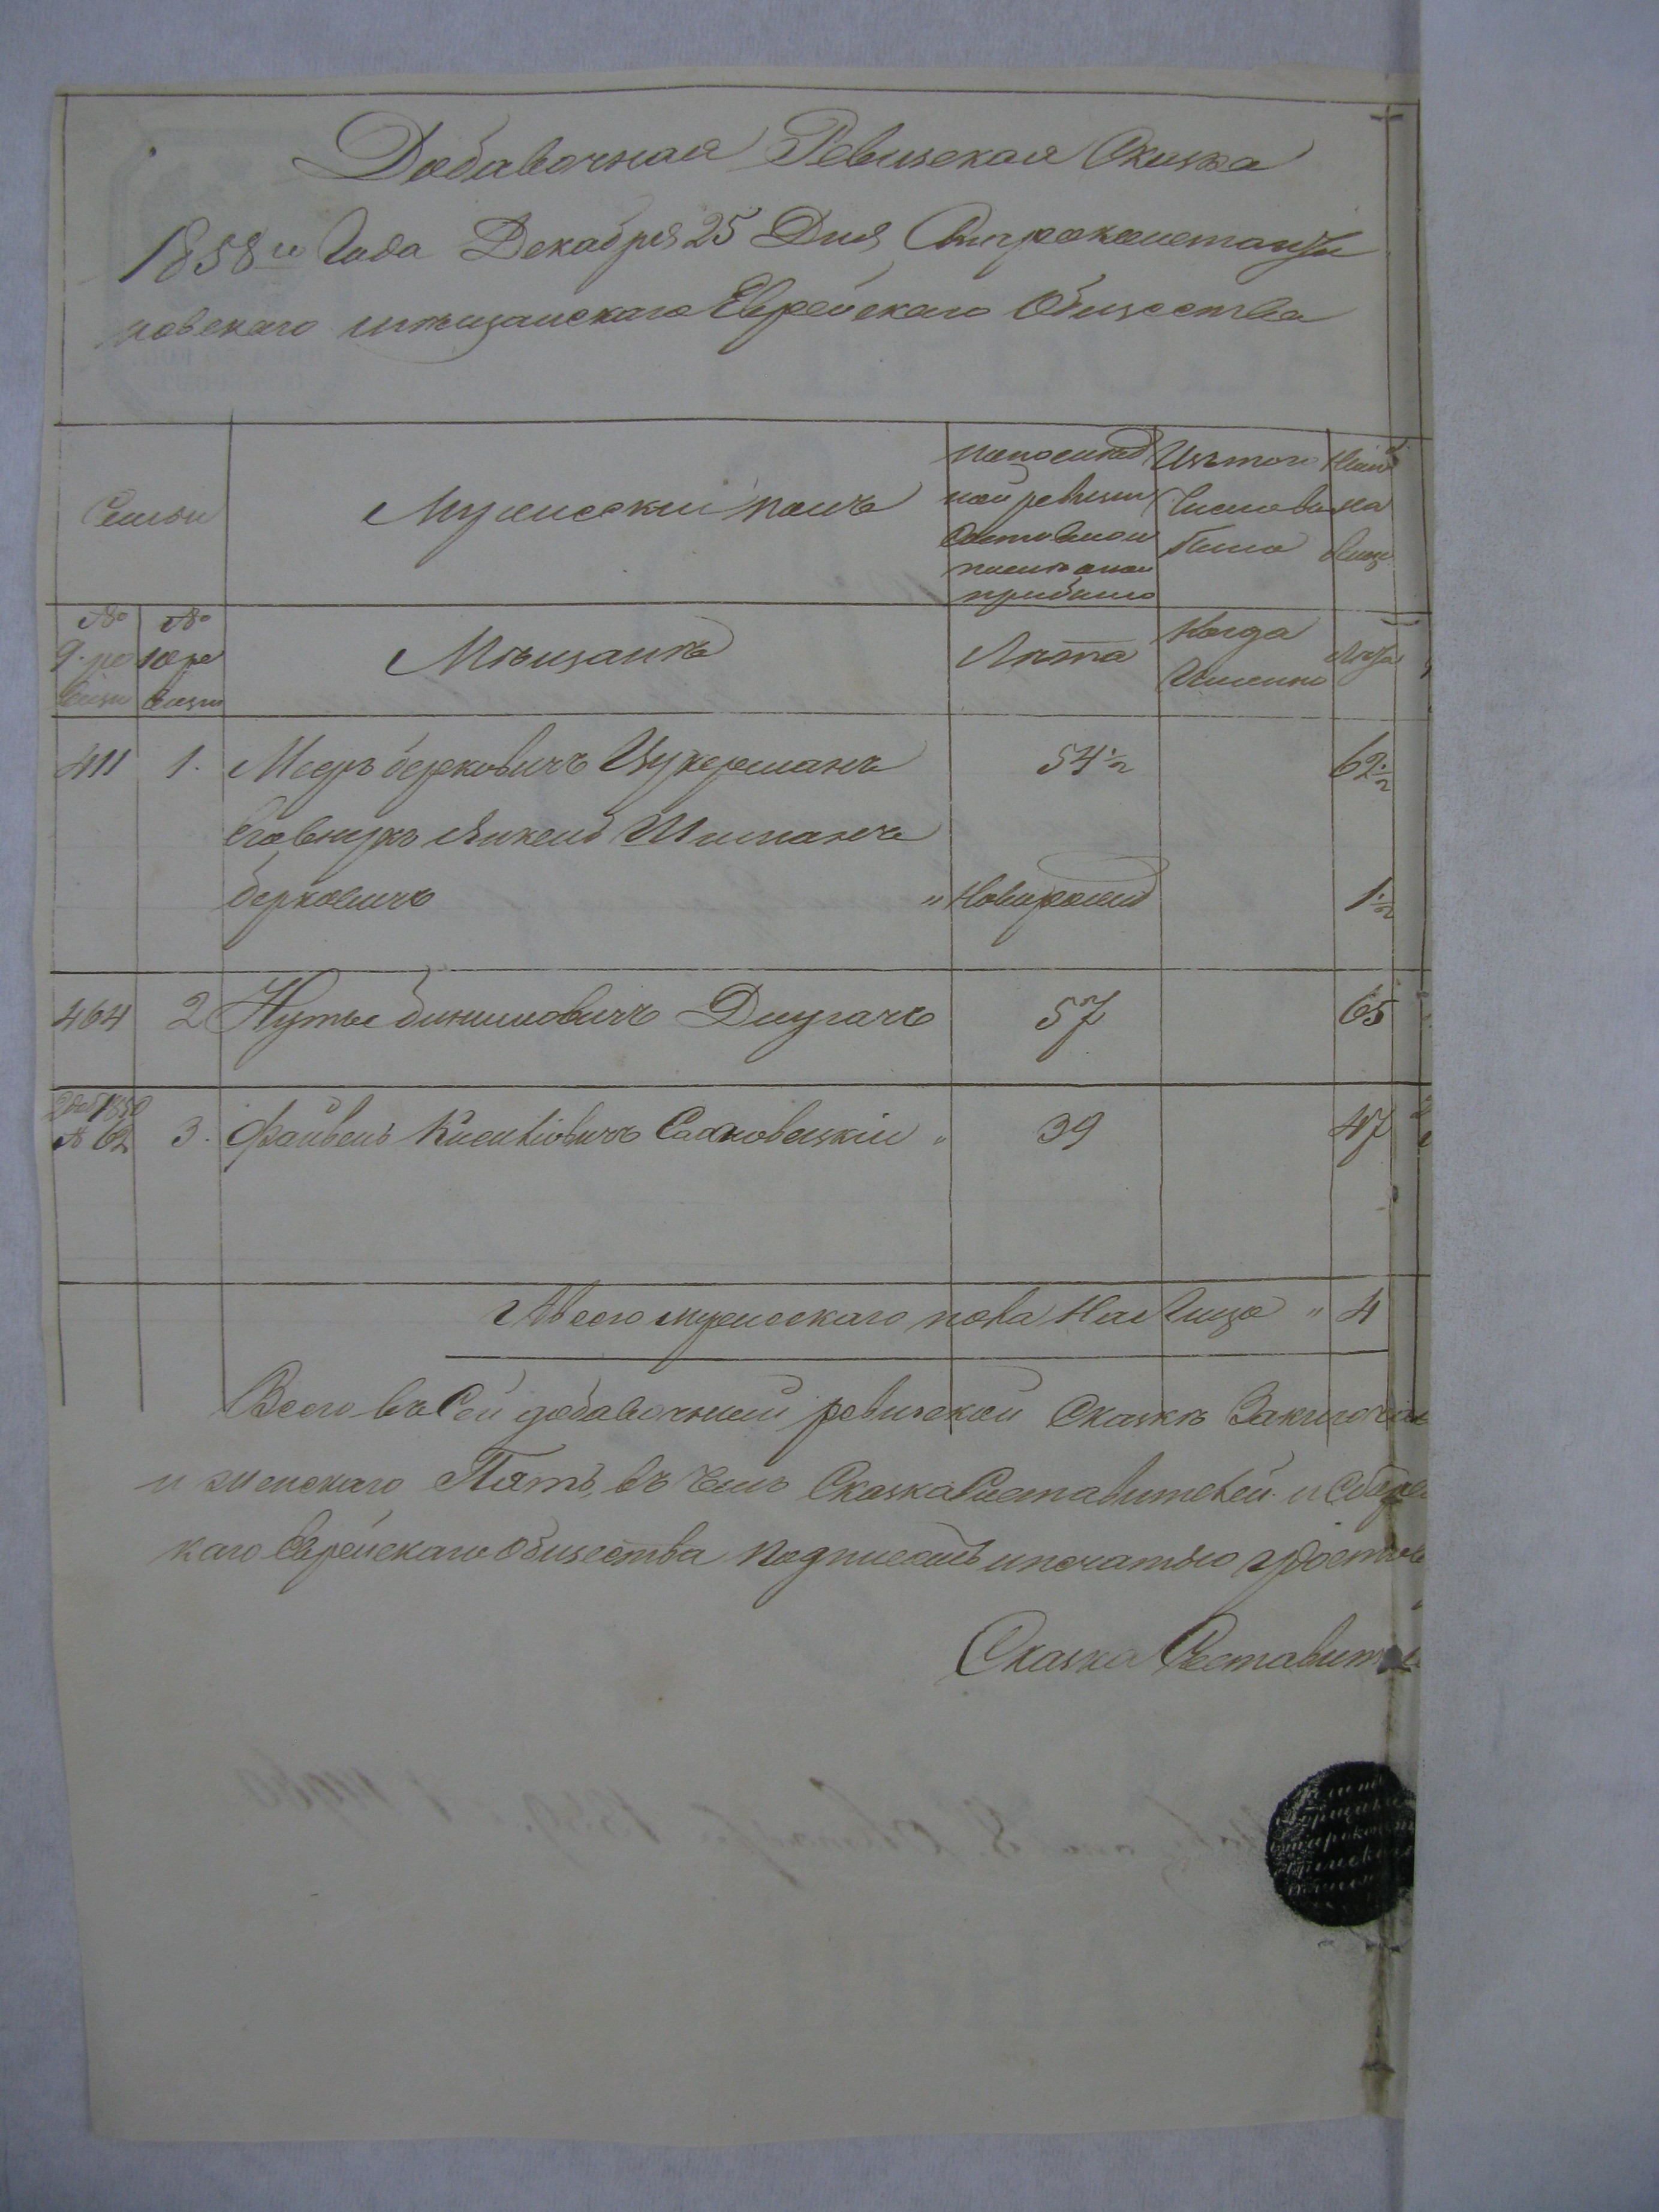 Добавочная Ревизская Сказка
1858го Года Декабря 25 Дня Староконстанти
новскаго мѣщанскаго Еврейскаго Общества
Семьи
Мужескій полъ
По послед
ней ревизіи
состояло и
после оной
прибыло
Изъ того
Числа вы
было
Нынѣ
на
лицо
№
9. ре
визіи
№
10 ре
визіи
Мѣщанъ
Лѣта
Когда
Именно
Лѣта
411 1. Мееръ берковичъ Цукерманъ 54 ½ 62 ½
Его внукъ Янкель Шиманъ
берковичъ " Новорожд 1 ½
464 2 Нутые биниовичъ Длугачъ 57 65
2 доб 1850
№ 62 3. Файвель Киелтовичъ Сасновецкій " 39 47
А всего мужескаго пола на Лицо " 4
Всего въ Сей добавочной ревизской Сказкѣ Заключе
и женскаго Пять, въ чемъ Сказкасоставителей и
каго Еврейскаго Общества подписомъ и печатью удосто
Сказка Составит